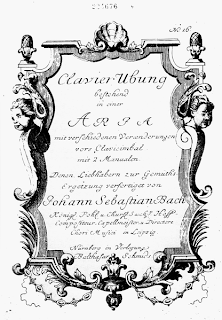 No 16
Clavier Ubung
bestehend
in einer
ARIA
mit verschiedenen Veraenderungen
vors Clavicimbal
mit 2 Manualen.
Denen Liebhabern zur Gemüths-
Ergetzung verfertiget von
Johann Sebastian Bach
Königl. Pohl. u. Churfl. Sæchs. Hoff-
Compositeur, Capellmeister, u. Directore
Chori Musici in Leipzig.
Nürnberg in Verlegung
Balthasar Schmids